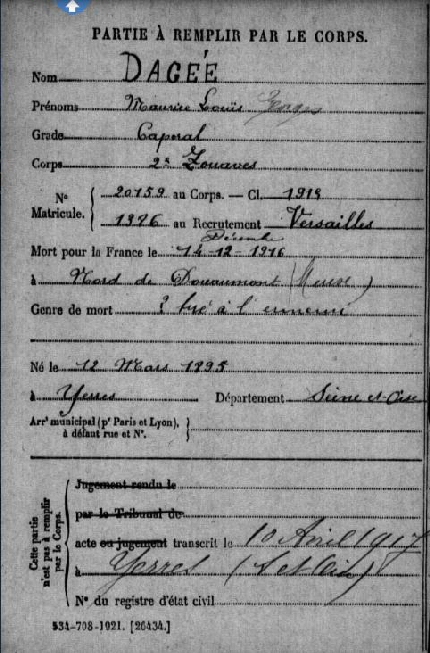 PARTIE À REMPLIR PAR LE CORPS.
Nom DAGÉE
Prénoms Maurice Louis Georges
Grade Caporal
Corps 2e Zouaves
N° Matricule. 20159 au Corps. — Cl. 1915
1396 au Recrutement Versailles
Décembre
Mort pour la France le 14-12-1916
à Nord de Douaumont (Meuse)
Genre de mort tué à l'ennemi
Né le 12 Mars 1895
à Yerres Département Seine et Oise
Arrt municipal (pr Paris et Lyon), à défaut rue et N°.
Cette partie n'est pas à remplir par le Corps.
Jugement rendu le
par le Tribunal de
acte ou jugement transcrit le 10 Avril 1917
à Yerres (S et Oise)
N° du registre d'état civil
534-708-1921. [26434.]